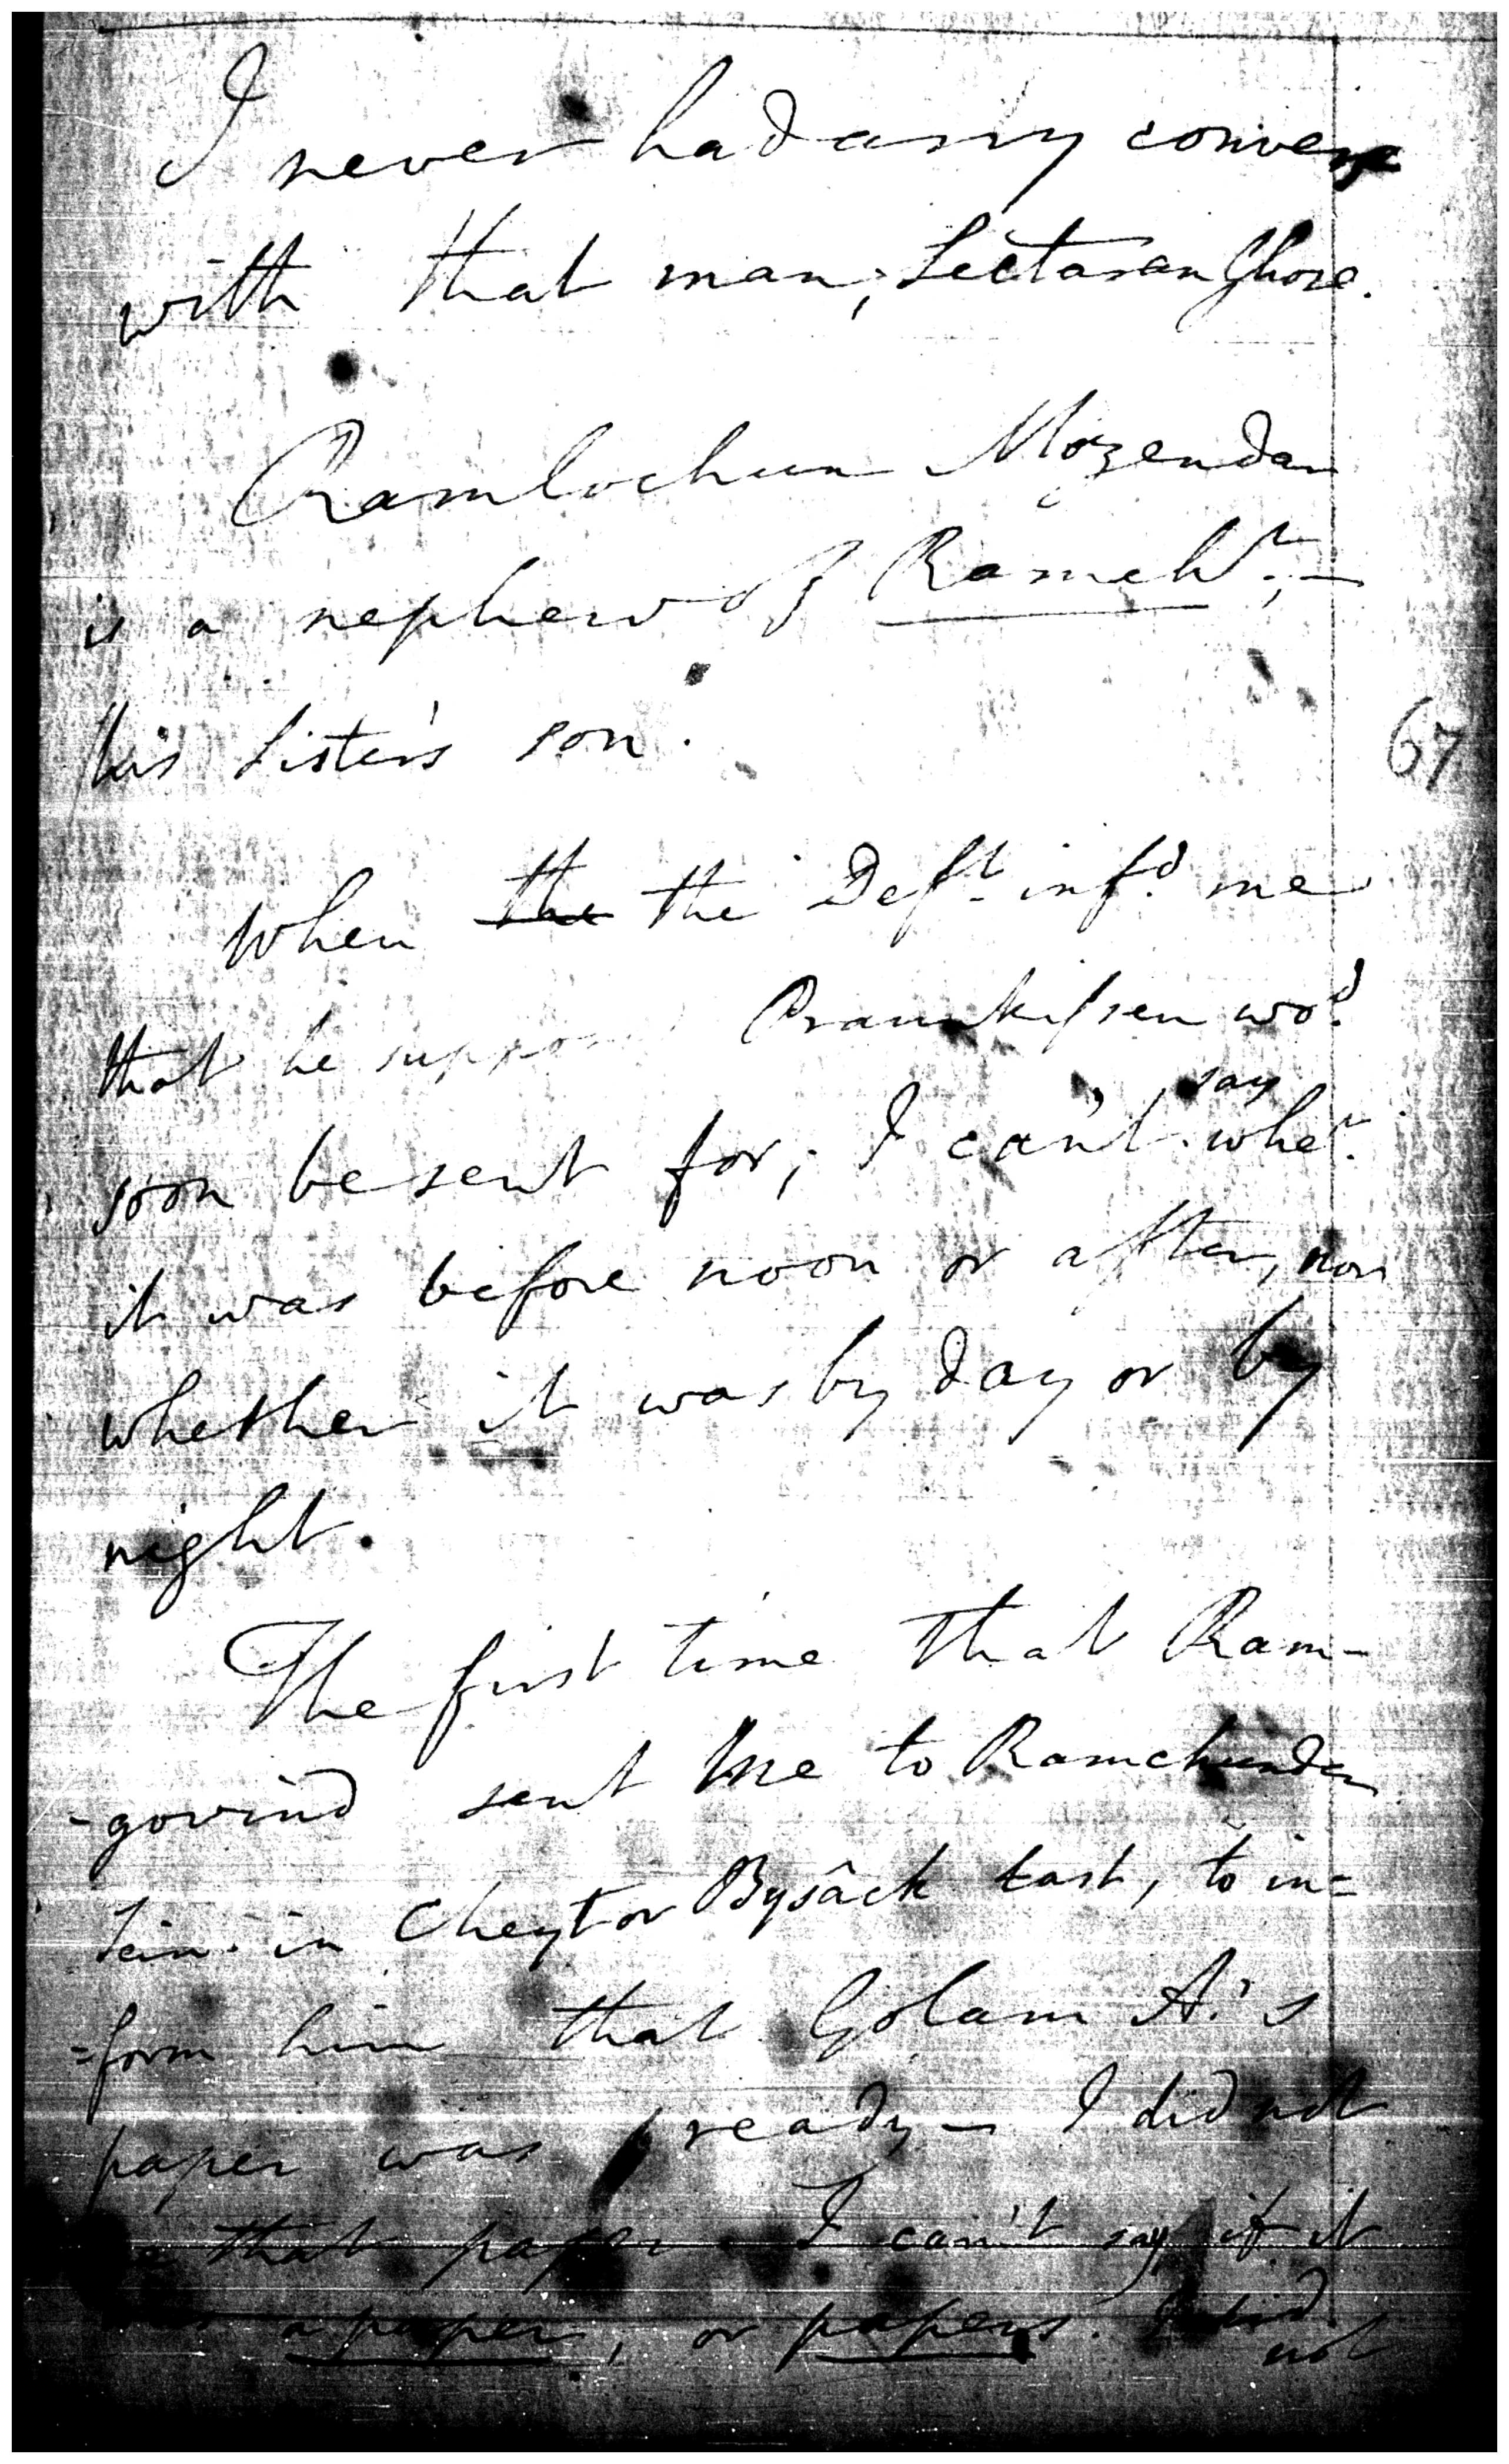 I never had any converse
with that man, Seetaram Ghose.
Ramlochun Mozendar
is a nephew of Ramchr.,—
his sister's son.
67
When the the Deft. infd. me
that he suppos Prankissen wod.
say
soon be sent for; I can't wher.
it was before noon or after, nor
whether it was by day or by
night.
The first time that Ram-
-govind sent me to Ramchunder
Sein. in Cheytor Bysâck last, to in=
=form him that Golam A.'s
paper was ready — I did not
that paper. I can't say if it
a paper, or papers. I did
not